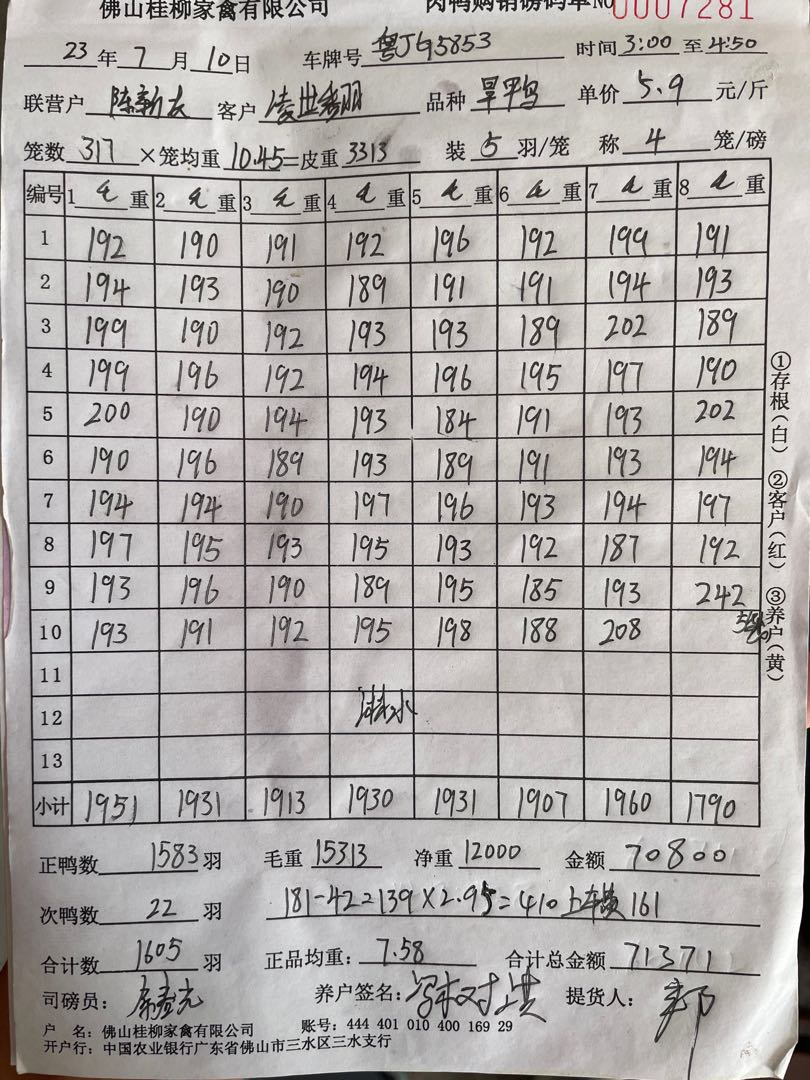 佛山桂柳家禽有限公司 肉鸭购销磅码单 No 0007281
23 年 7 月 10 日 车牌号 粤JG5853 时间 3:00 至 4:50
联营户 陈新友 客户 品种 旱鸭 单价 5.9 元/斤
笼数 317 ×笼均重 10.45 =皮重 3313 装 5 羽/笼 称 4 笼/磅
编号 1 毛 重 2 毛 重 3 毛 重 4 毛 重 5 毛 重 6 毛 重 7 毛 重 8 毛 重
1 192 190 191 192 196 192 199 191
2 194 193 190 189 191 191 194 193
3 199 190 192 193 193 189 202 189
4 199 196 192 194 196 195 197 190
5 200 190 194 193 184 191 193 202
6 190 196 189 193 189 191 193 194
7 194 194 190 197 196 193 194 197
8 197 195 193 195 193 192 187 192
9 193 196 190 189 195 185 193 242
10 193 191 192 195 198 188 208
11
12 淋水
13
小计 1951 1931 1913 1930 1931 1907 1960 1790
正鸭数 1583 羽 毛重 15313 净重 12000 金额 70800
次鸭数 22 羽 181-42=139×2.95=410 上车费 161
合计数 1605 羽 正品均重: 7.58 合计总金额 71371
司磅员: 养户签名: 提货人:
户 名: 佛山桂柳家禽有限公司 账号: 444 401 010 400 169 29
开户行: 中国农业银行广东省佛山市三水区三水支行
①存根(白) ②客户(红) ③养户(黄)